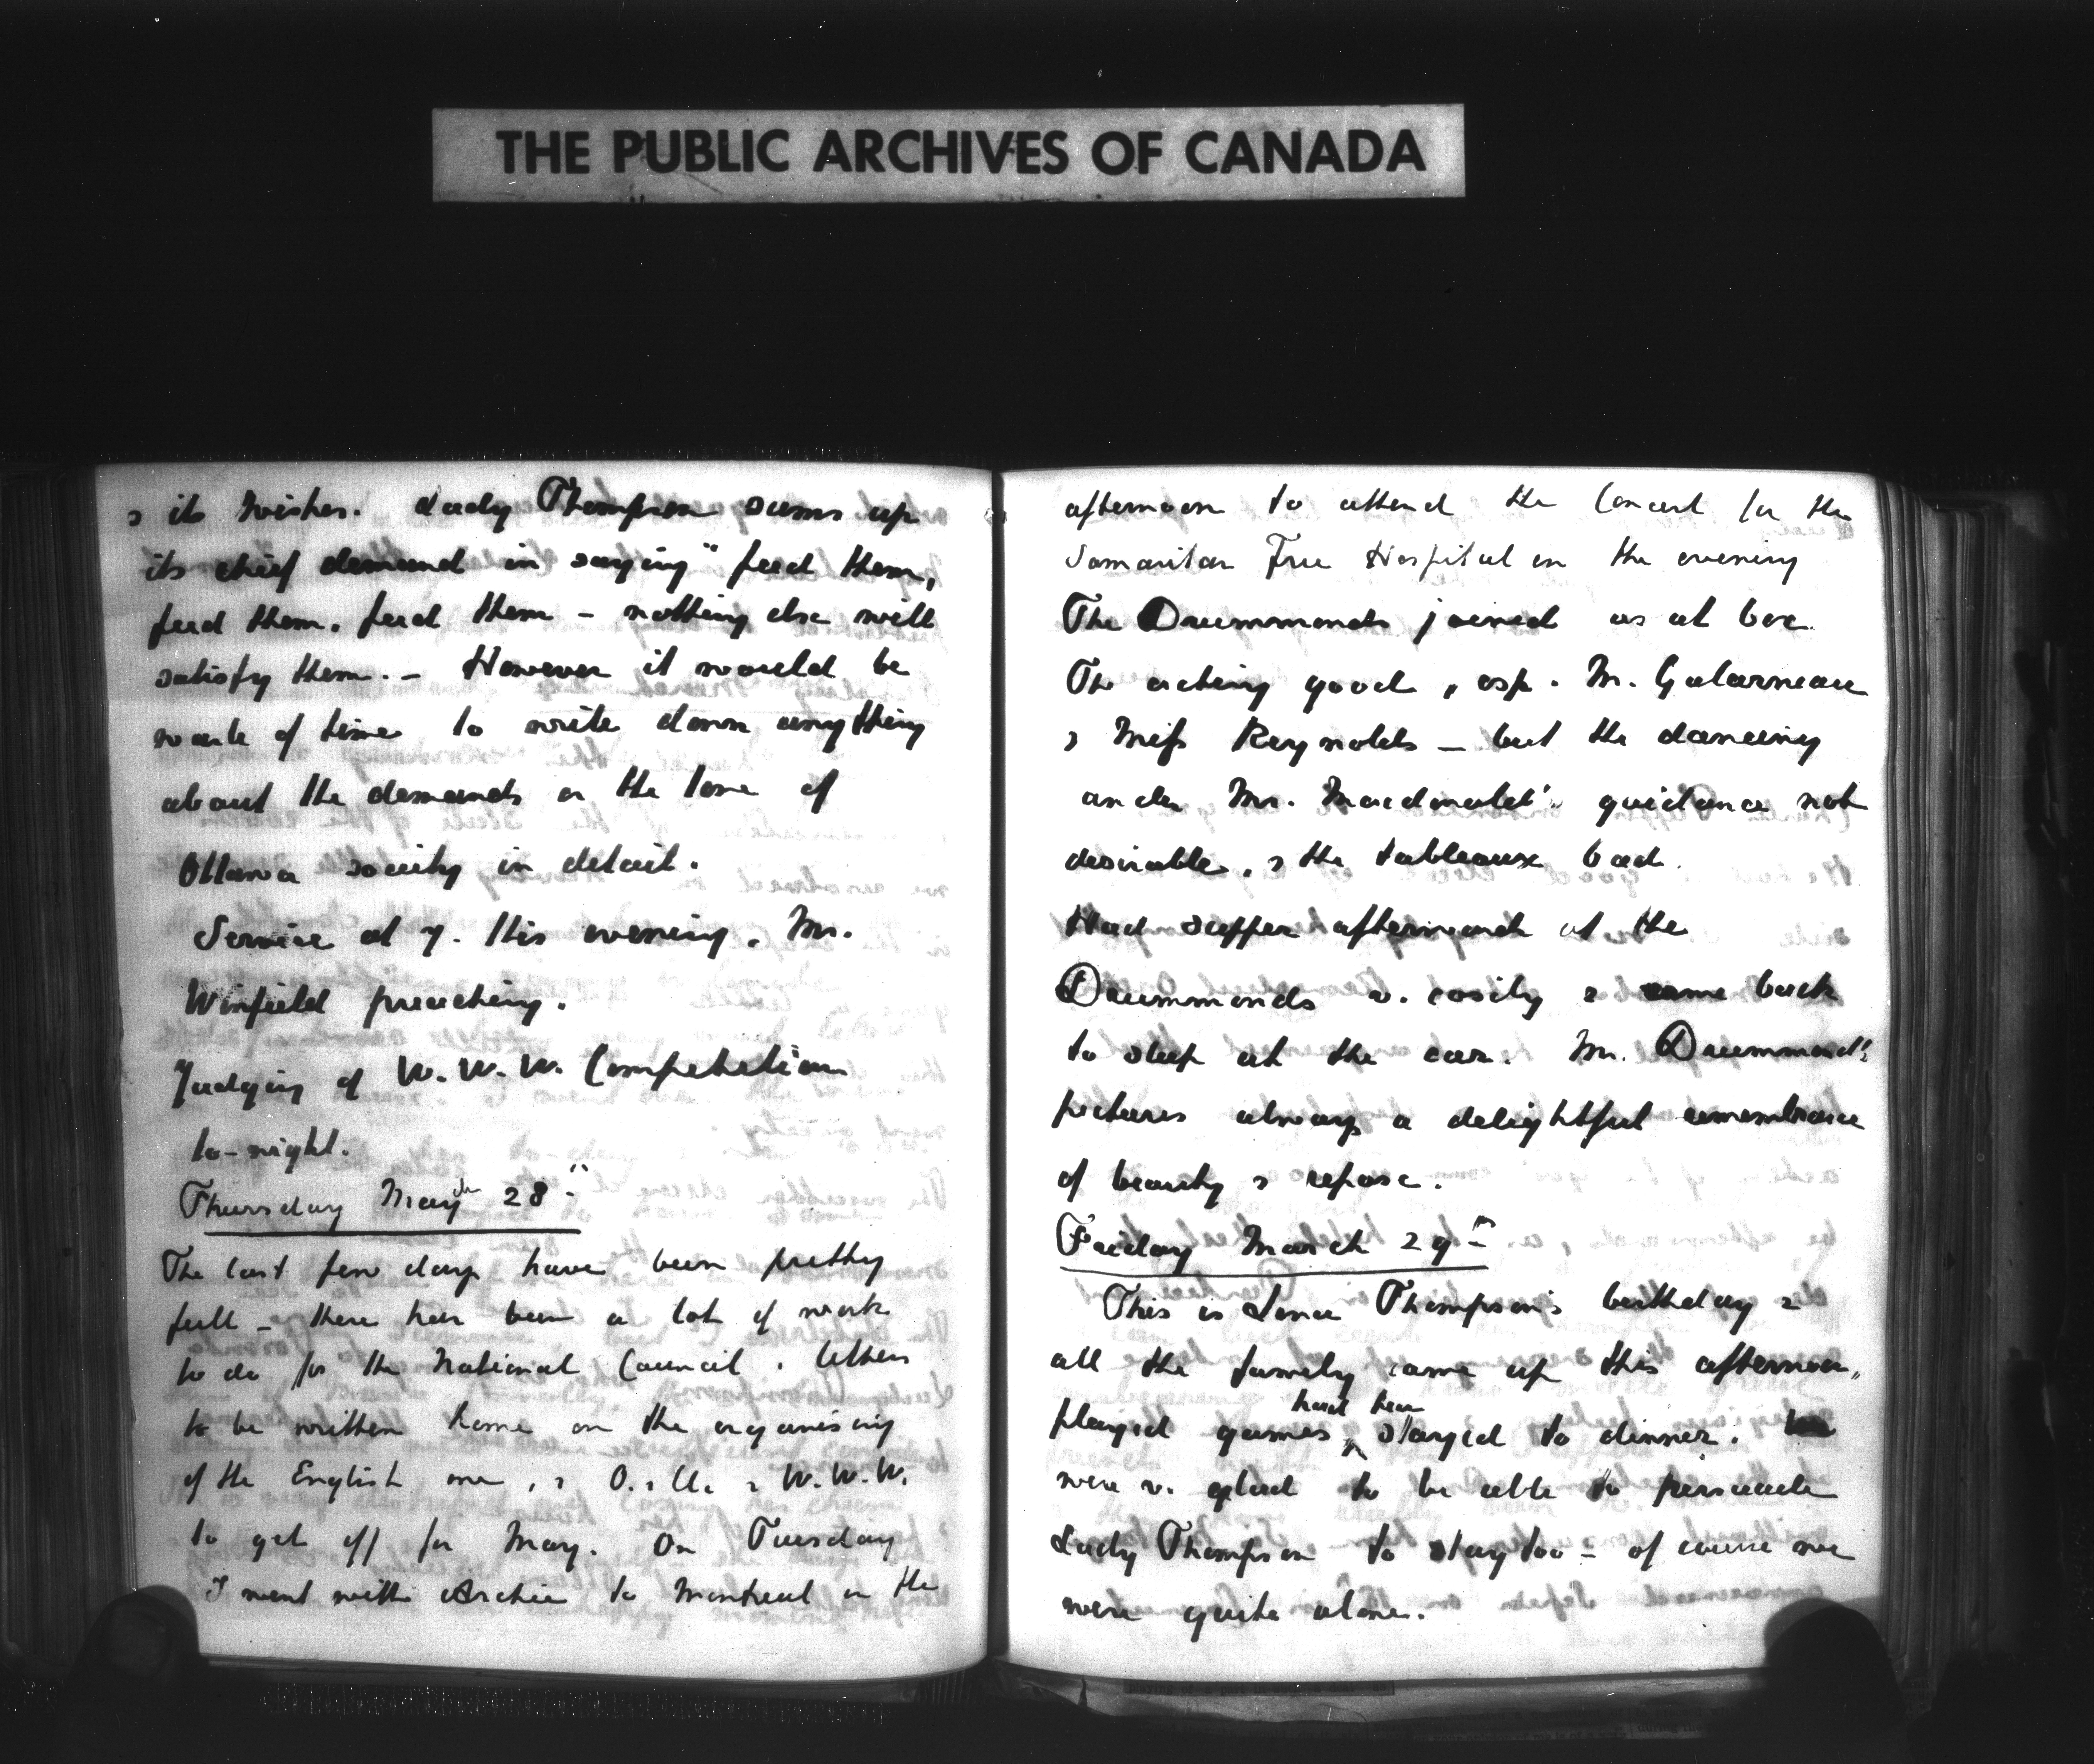 THE PUBLIC ARCHIVES OF CANADA
& its wishes. Lady Thompson sums up
its chief demand in saying "feed them,
feed them, feed them – nothing else will
satisfy them. – However it would be
waste of time to write down anything
about the demands or the tone of
Ottawa society in detail.
Service at 7. this evening, Mr.
Winfield preaching.
Judging of W.W.W. Competition
to-night.
Thursday March 28th
The last few days have been pretty
full – there has been a lot of work
to do for the National Council, letters
to be written home on the organising
of the English one, & O. & U. & W.W.W.
to get off for May. On Tuesday
I went with Archie to Montreal in the
afternoon to attend the Concert for the
Samaritan Free Hospital in the evening
The Drummonds joined us at box.
The acting good, esp. M. Galarneau
& Miss Reynolds – but the dancing
under Mr. Macdonald's guidance not
desirable, & the tableaux bad.
Had supper afterwards at the
Drummonds v. cosily & came back
to sleep at the car. Mr. Drummond's
pictures always a delightful remembrance
of beauty & repose.
Friday March 29th
This is Lena Thompson's birthday &
all the family came up this afternoon,
had tea
played games, stayed to dinner. We
were v. glad to be able to persuade
Lady Thompson to stay too – of course we
were quite alone.